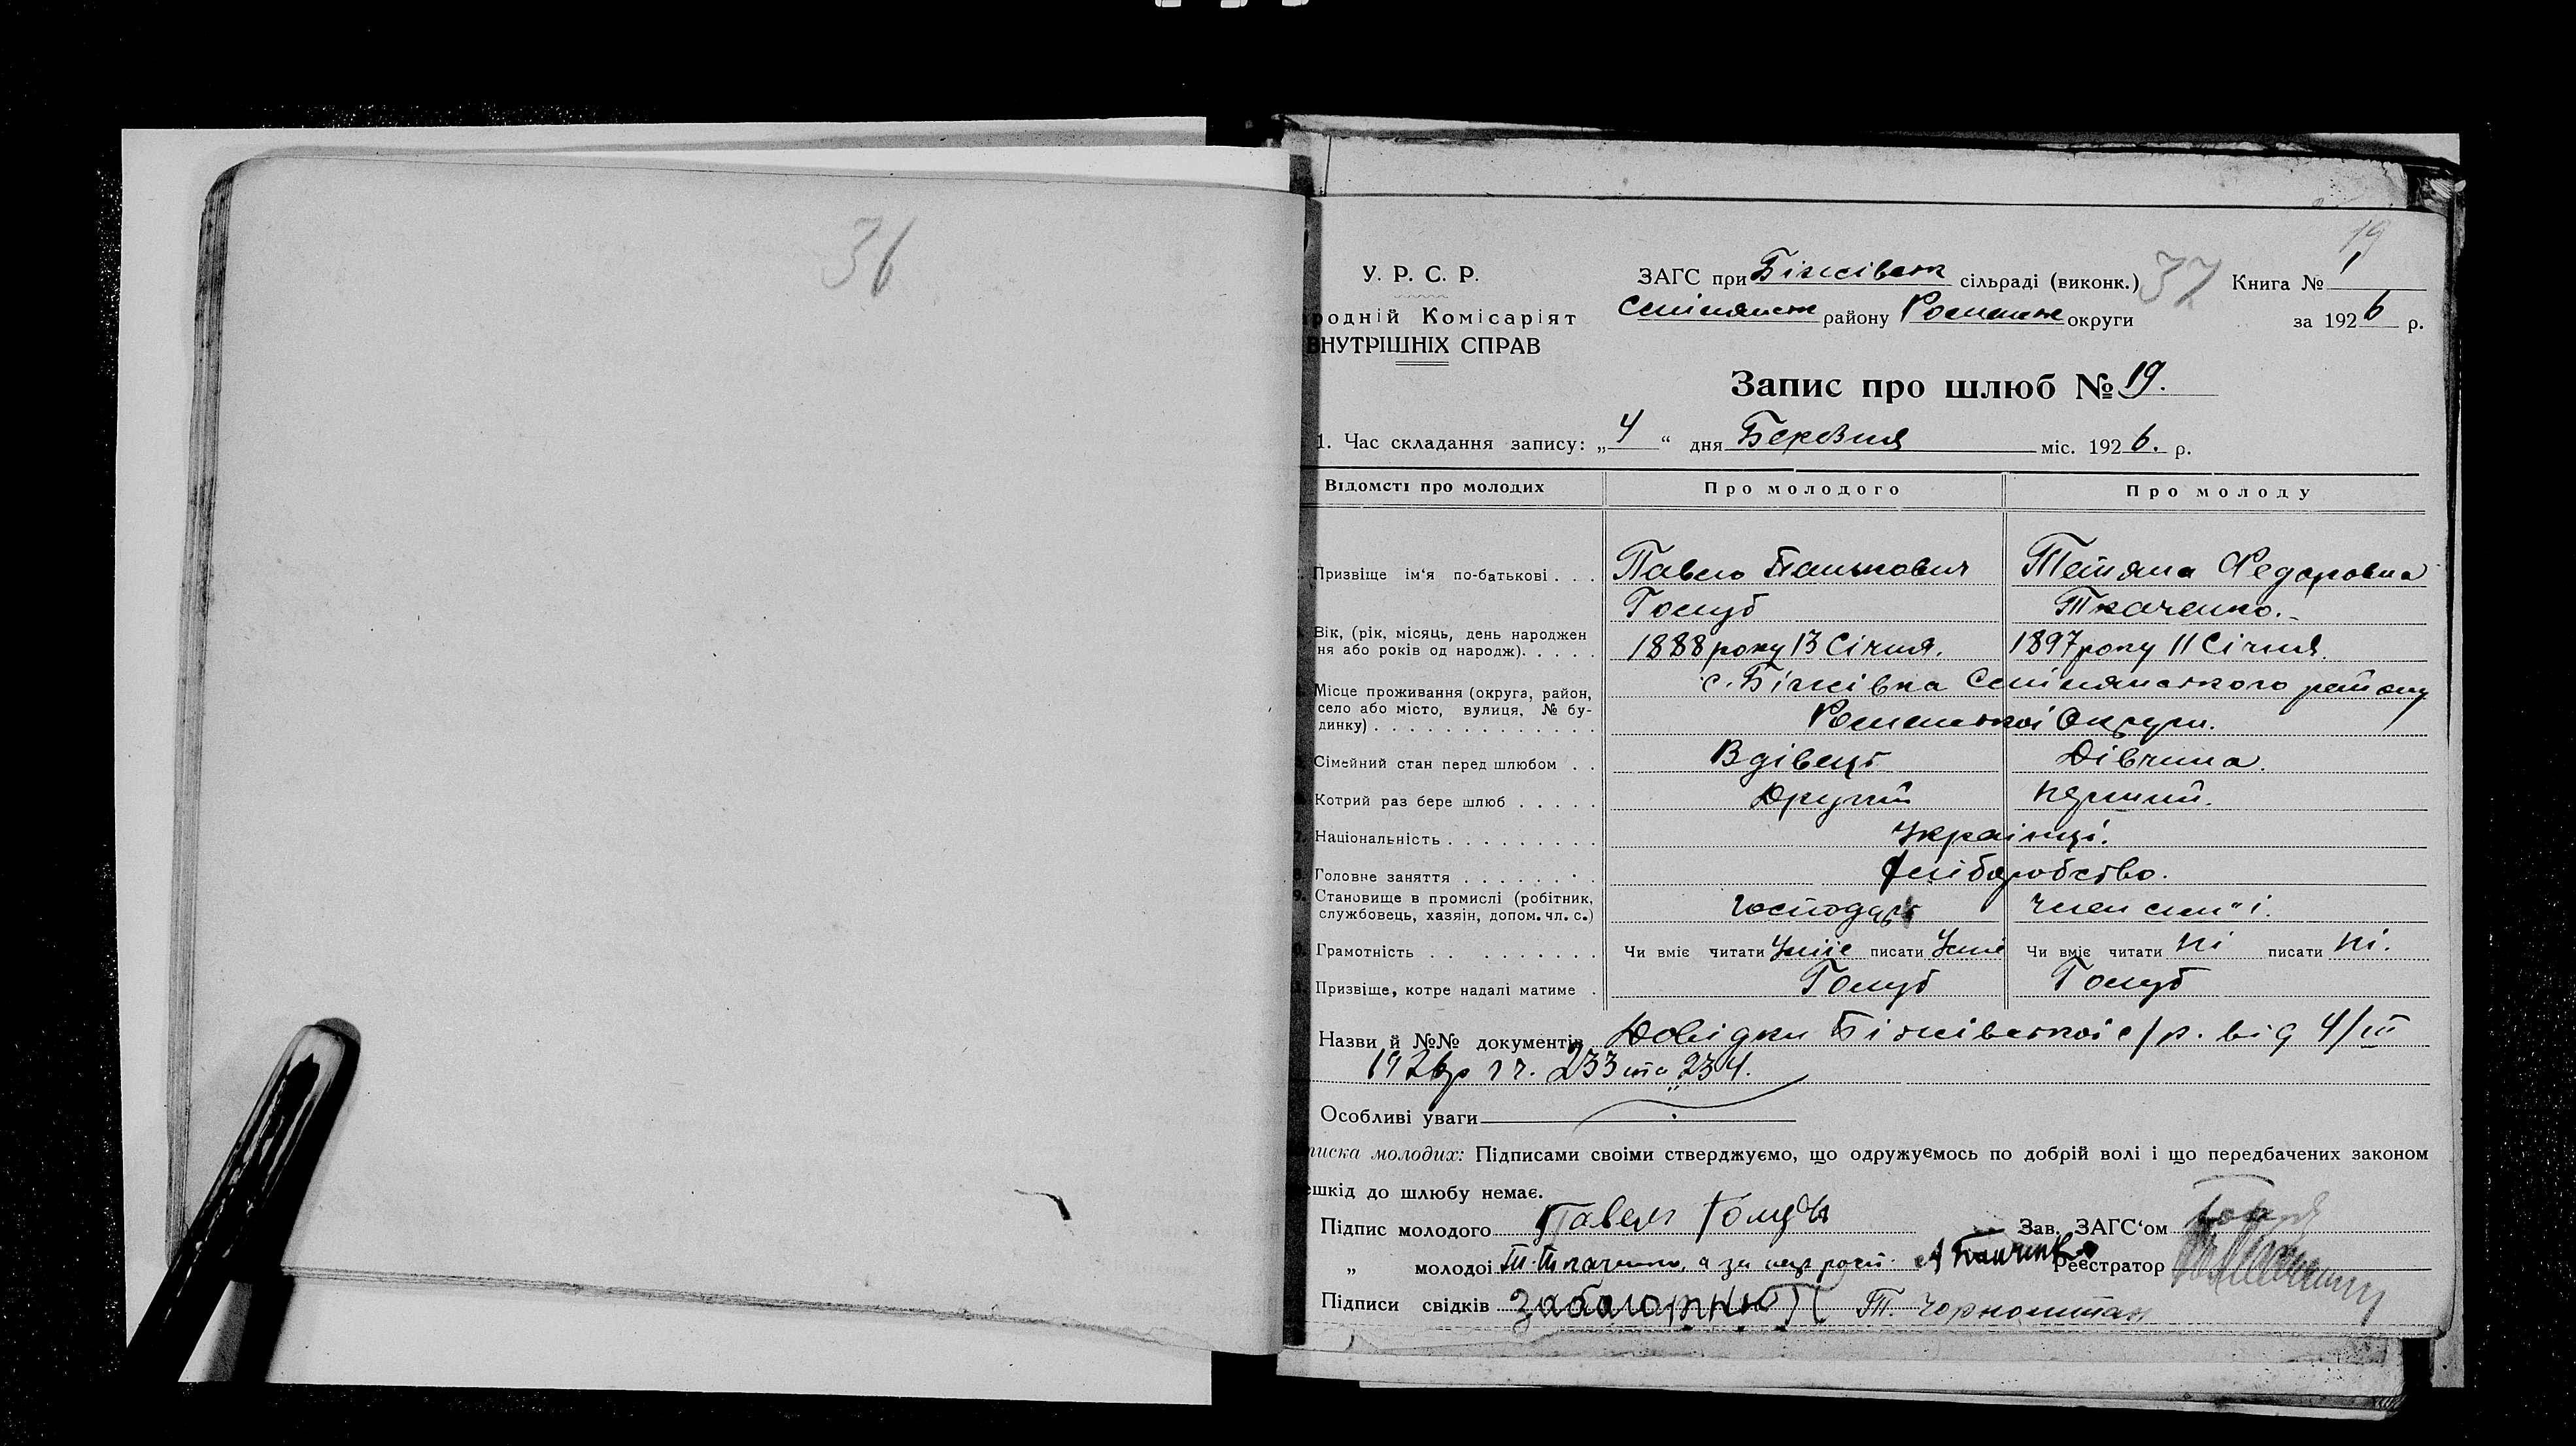 36
19
У. Р. С. Р.
ЗАГС при Біжівськ сільраді (виконк.) 37 Книга № 1
родній Комісаріят
Смілянськ району Роменськ округи за 1926 р.
ВНУТРІШНІХ СПРАВ
Запис про шлюб № 19.
1. Час складання запису: „ 4 “ дня Березня міс. 1926. р.
Відомсті про молодих Про молодого Про молоду
Призвіще ім'я по-батькові . . . Павло Панькович Тетяна Федоровна
Голуб Ткаченко.
Вік, (рік, місяць, день народжен
ня або років од народж). . . . . 1888 року 13 Січня. 1897 року 11 Січня.
Місце проживання (округа, район, с. Біжівка Смілянського району
село або місто, вулиця, № бу-
динку) . . . . . . . . . . . . . Роменської Округи.
Сімейний стан перед шлюбом . . Вдівець Дівчина.
Котрий раз бере шлюб . . . . . Другий перший.
7. Національність . . . . . . . . . Українці.
8. Головне заняття . . . . . . . . . хліборобство.
9. Становище в промислі (робітник,
службовець, хазяін, допом. чл. с.) господарь член сем"і.
0. Грамотність . . . . . . . . . . Чи вміє читати Уміє писати Уміє Чи вміє читати ні писати ні.
Призвіще, котре надалі матиме . Голуб Голуб
Назви й №№ документів Довідки Біжівської с/р. від 4/III
1926р з ч. 233 та 234.
Особливі уваги
писка молодих: Підписами своіми стверджуємо, що одружуємось по добрій волі і що передбачених законом
ешкід до шлюбу немає.
Підпис молодого Павелъ Голубъ Зав. ЗАГС'ом
„ молодоі Т. Ткаченко, а за неї розп. Реєстратор
Підписи свідків Т. Чорноштан